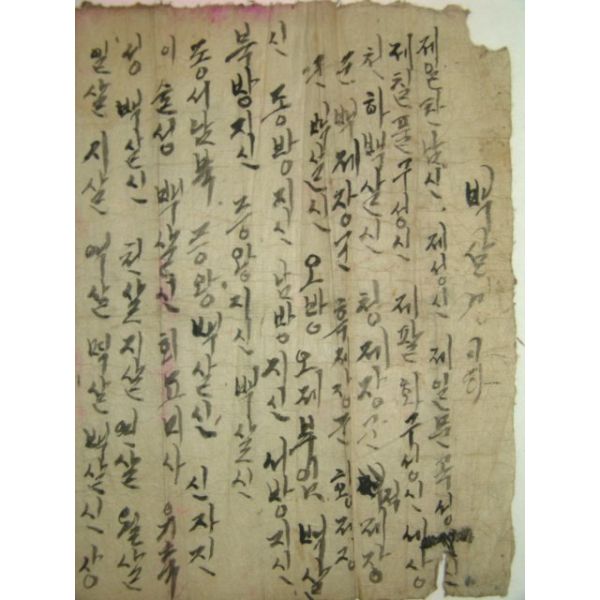 백살경이라
제일탄남신 제성신 제일문곡성신
제칠풀무성신 제팔화구성신 세상
천하백살신 청제장군 적제장
군 백제장군 흑제장군 황제장
군 백살신 오방오제부인 백살
신 동방지신 남방지신 서방지신
북방지신 중앙지신 백살신
동서남북 중앙백살신 신자진
이 호성 백살신 사 유축
성 백살신 천살지살 연살 월살
일살 지살 역살 백살신 상